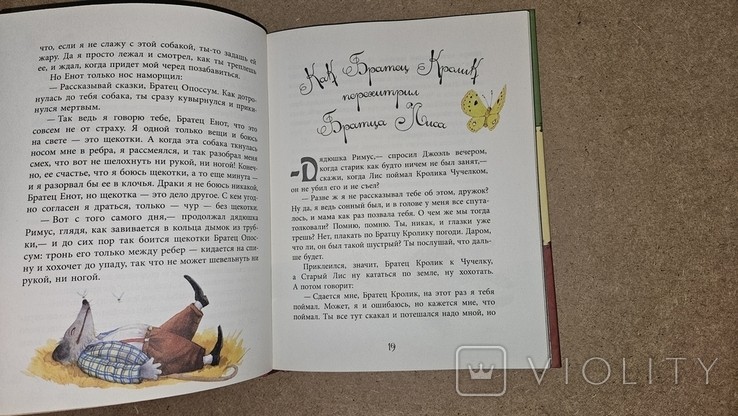 что, если я не слажу с этой собакой, ты-то задашь ей
жару. Да я просто лежал и смотрел, как ты треплешь
ее, и ждал, когда придет мой черед позабавиться.
Но Енот только нос наморщил:
— Рассказывай сказки, Братец Опоссум. Как дотро-
нулась до тебя собака, ты сразу кувырнулся и прики-
нулся мертвым.
— Так ведь я говорю тебе, Братец Енот, что это
совсем не от страху. Я одной только вещи и боюсь
на свете — это щекотки. А когда эта собака ткнулась
носом мне в ребра, я рассмеялся, и так разобрал меня
смех, что вот не шелохнуть ни рукой, ни ногой! Конеч-
но, ее счастье, что я боюсь щекотки, а то еще минута —
и я разорвал бы ее в клочья. Драки я не боюсь никакой,
Братец Енот, но щекотка — это дело другое. С кем угод-
но согласен я драться, только — чур — без щекотки.
— Вот с того самого дня,— продолжал дядюшка
Римус, глядя, как завивается в кольца дымок из труб-
ки,— и до сих пор так боится щекотки Братец Опос-
сум: тронь его только между ребер — кидается на спи-
ну и хохочет до упаду, так что не может шевельнуть ни
рукой, ни ногой.
Как Братец Кролик
перехитрил
Братца Лиса
—Дядюшка Римус,— спросил Джоэль вечером,
когда старик как будто ничем не был занят,—
скажи, когда Лис поймал Кролика Чучелком,
он не убил его и не съел?
— Разве ж я не рассказывал тебе об этом, дружок?
Ну да, я ведь сонный был, и в голове у меня все спута-
лось, и мама как раз позвала тебя. О чем же мы тогда
толковали? Помню, помню. Ты, никак, и глазки уже
трешь? Нет, плакать по Братцу Кролику погоди. Даром,
что ли, он был такой шустрый? Ты послушай, что даль-
ше будет.
Приклеился, значит, Братец Кролик к Чучелку,
а Старый Лис ну кататься по земле, ну хохотать.
А потом говорит:
— Сдается мне, Братец Кролик, на этот раз я тебя
поймал. Может, я и ошибаюсь, но кажется мне, что
поймал. Ты все тут скакал и потешался надо мной, но
19
VIOLITY